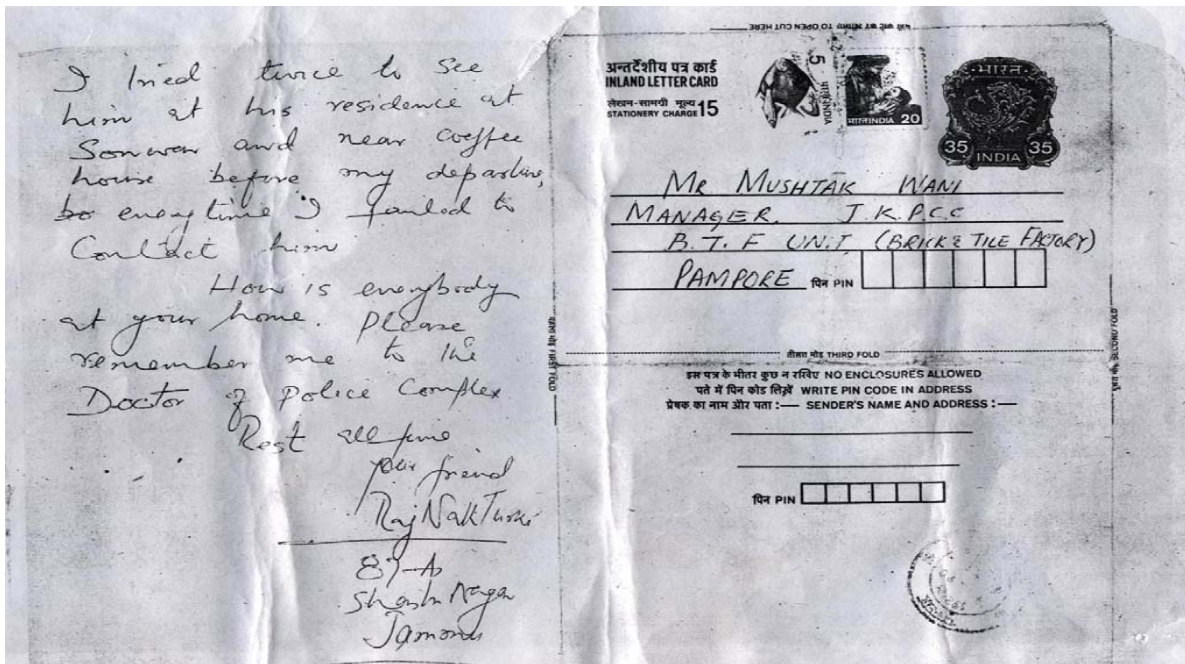 I tried twice to see
him at his residence at
Sonwar and near coffee
house before my departure,
but everytime I failed to
Contact him
How is everybody
at your home. Please
remember me to the
Doctor of Police Complex
Rest all fine
your friend
Raj Nath
87-A
Shastri Nagar
Jammu
TO OPEN CUT HERE
अन्तर्देशीय पत्र कार्ड
INLAND LETTER CARD
लेखन-सामग्री मूल्य 15
STATIONERY CHARGE
5
भारत INDIA 20
भारत
35 35
INDIA
MR MUSHTAK WANI
MANAGER. J.K.P.C.C
B.T.F UNIT (BRICK & TILE FACTORY)
PAMPORE पिन PIN
पहला मोड़ FIRST FOLD
दूसरा मोड़ SECOND FOLD
तीसरा मोड़ THIRD FOLD
इस पत्र के भीतर कुछ न रखिए NO ENCLOSURES ALLOWED
पते में पिन कोड लिखें WRITE PIN CODE IN ADDRESS
प्रेषक का नाम और पता :— SENDER'S NAME AND ADDRESS :—
पिन PIN